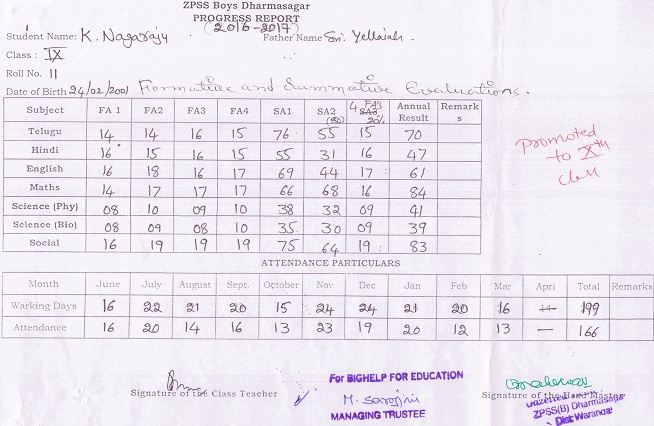 ZPSS Boys Dharmasagar
PROGRESS REPORT
(2016-2017)
Student Name: K. Nagaraju Father Name Sri. Yellaiah.
Class : IX
Roll No. 11
Date of Birth 24/02/2001 Formative and Summative Evaluations.
Subject FA 1 FA2 FA3 FA4 SA1 SA2 (80) 4 FA's SA3 20% Annual Result Remarks
Telugu 14 14 16 15 76 55 15 70
Hindi 16 15 16 15 55 31 16 47
English 16 18 16 17 69 44 17 61
Maths 14 17 17 17 66 68 16 84
Science (Phy) 08 10 09 10 38 32 09 41
Science (Bio) 08 09 08 10 35 30 09 39
Social 16 19 19 19 75 64 19 83
Promoted
to Xth
class
ATTENDANCE PARTICULARS
Month June July August Sept. October Nov Dec Jan Feb Mar Apri Total Remarks
Warking Days 16 22 21 20 15 24 24 21 20 16 199
Attendance 16 20 14 16 13 23 19 20 12 13 — 166
Signature of the Class Teacher
For BIGHELP FOR EDUCATION
M. Sarojini
MANAGING TRUSTEE
Signature of the Head Master
Gazetted
ZPSS(B) Dharmasagar
Dist Warangal